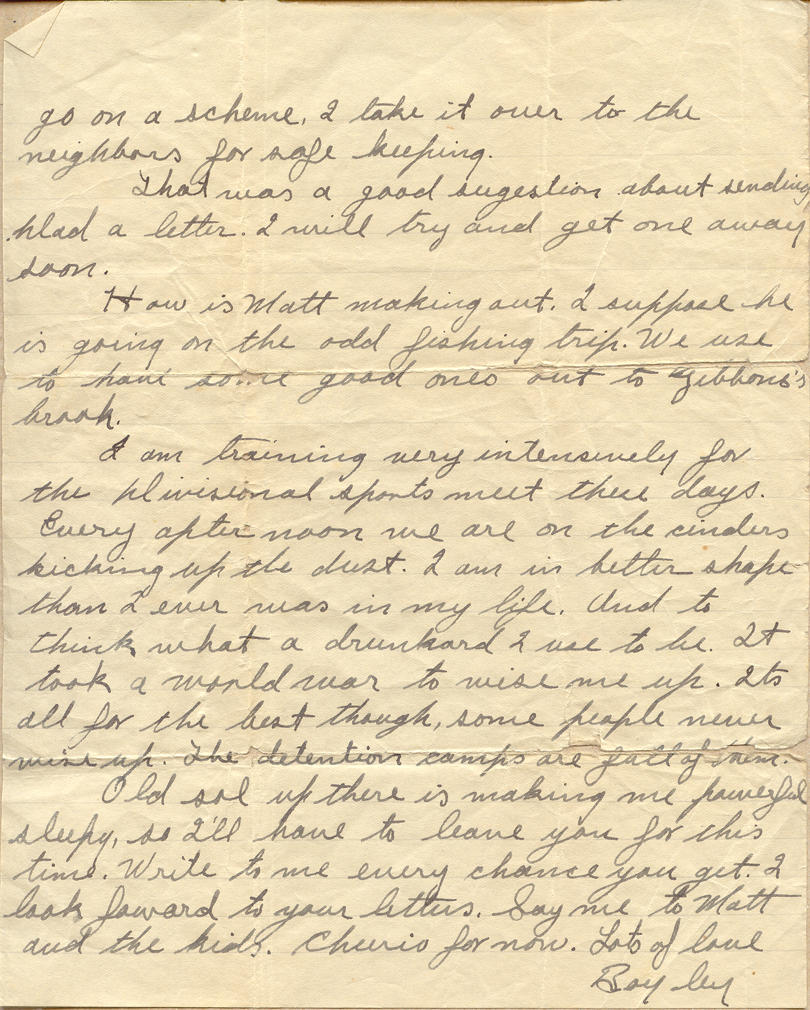 go on a scheme, I take it over to the
neighbors for safe keeping.
That was a good sugestion about sending
Dad a letter. I will try and get one away
soon.
How is Matt making out. I suppose he
is going on the odd fishing trip. We use
to have some good ones out to Gibbons's
brook.
I am training very intensively for
the Divisional sports meet these days.
Every after noon we are on the cinders
kicking up the dust. I am in better shape
than I ever was in my life. And to
think what a drunkard I use to be. It
took a world war to wise me up. Its
all for the best though, some people never
wise up. The detention camps are full of them.
Old sol up there is making me powerful
sleepy, so I'll have to leave you for this
time. Write to me every chance you get. I
look foward to your letters. Say me to Matt
and the kids. Cheerio for now. Lots of love